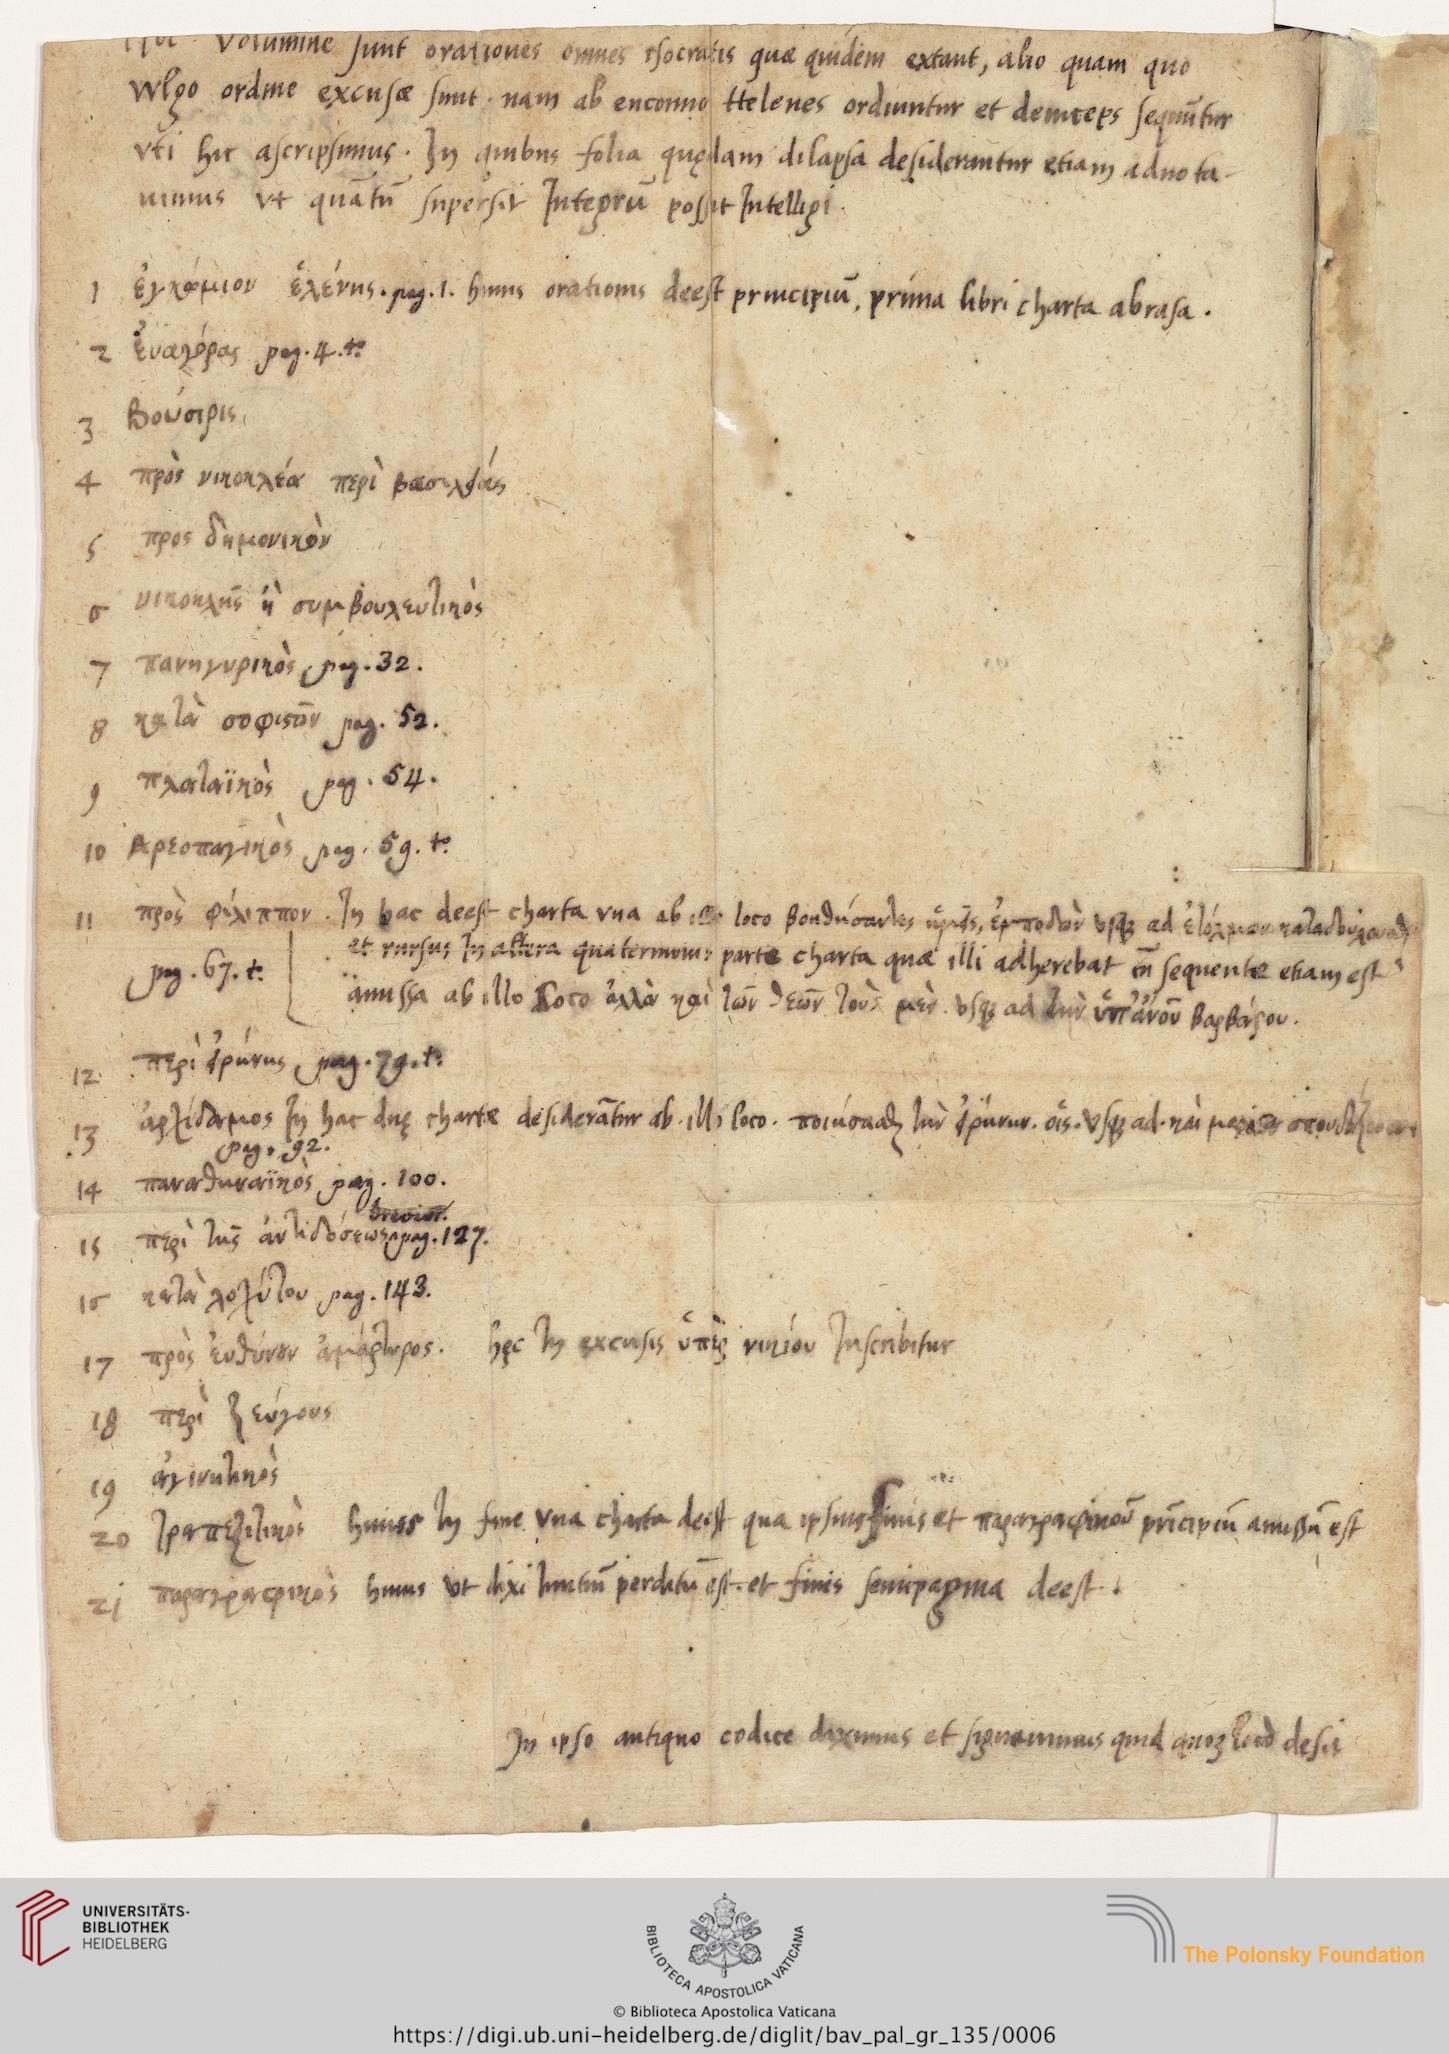 volumine sunt orationes omnes isocratis quæ quidem extant, alio quam quo
vulgo ordine excusæ sunt. nam ab encomio Helenes ordiuntur et deinceps sequūtur
vti hic ascripsimus. In quibus folia quędam dilapsa desiderantur etiam adnota-
uimus vt quātū supersit Integrū possit Intelligi.
1 ἐγκώμιον ἑλένης. pag. 1. huius orationis deest principiū, prima libri charta abrasa.
2 Ἐυαγόρας pag. 4. tº
3 Βούσιρις.
4 πρὸς νικοκλέα περὶ βασιλείας
5 προς δημονικὸν
6 νικοκλῆς ἢ συμβουλευτικὸς
7 πανηγυρικὸς pag. 32.
8 κατὰ σοφιστῶν pag. 52.
9 πλαταϊκὸς pag. 54.
10 Αρεοπαγικὸς pag. 59. tº
11 πρὸς φίλιππον. In hac deest charta vna ab loco βοηθήσαντες ὑμᾶς, ἐμποδὼν vsq; ad
et rursus In altera quaternionis parte charta quæ illi adherebat cū sequente etiam est
pag. 67. t.
amissa ab illo loco ἀλλὰ καὶ τῶν θεῶν τοὺς μὲν. vsq; ad τὴν ὑπ' ἀνδρὸς βαρβάρου.
12 περὶ εἰρήνης pag. 79. t.
13 ἀρχίδαμος In hac duę chartæ desiderātur ab illo loco. ποιήσασθαι τὴν εἰρήνην. οἷς. vsq; ad. καὶ
pag. 92.
14 παναθηναϊκὸς pag. 100.
15 περὶ τῆς ἀντιδόσεως pag. 127.
16 κατὰ λοχίτου pag. 143.
17 πρὸς ἐυθύνουν ἀμάρτυρος. hęc In excusis ὑπὲρ νικίου Inscribitur
18 περὶ ζεύγους
19 ἀιγινητικὸς
20 τραπεζιτικὸς huius In fine vna charta deest qua ipsius finis et παραγραφικοῦ prīcipiū amissū est
21 παραγραφικὸς huius vt dixi Initiū perditū est. et finis semipagina deest.
In ipso antiquo codice diximus et signauimus quid quoq; loco desit
UNIVERSITÄTS-
BIBLIOTHEK
HEIDELBERG
BIBLIOTECA APOSTOLICA VATICANA
The Polonsky Foundation
© Biblioteca Apostolica Vaticana
https://digi.ub.uni-heidelberg.de/diglit/bav_pal_gr_135/0006